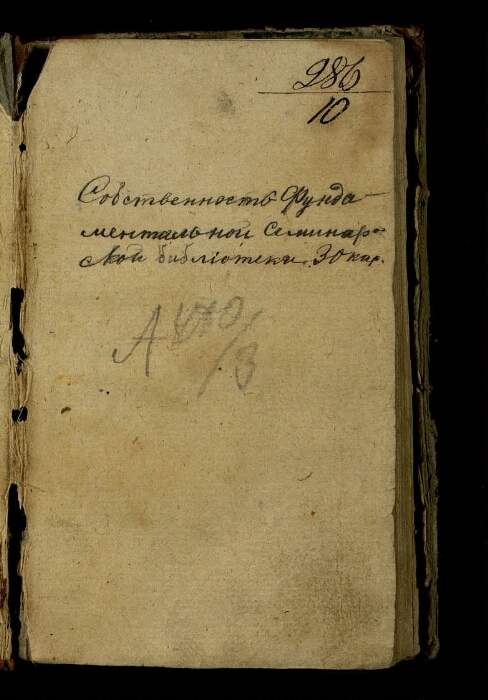 286
10
Собственность Фунда-
ментальной Семинар-
ской библіотеки. 30 кар.
A
/3